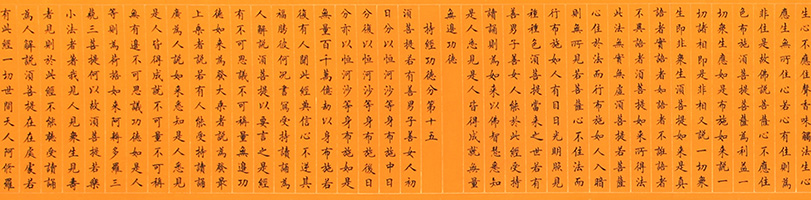 生心不應住聲香味觸法生心
應生無所住心若心有住則為
非住是故佛說菩薩心不應住
色布施須菩提菩薩為利益一
切眾生應如是布施如來說一
切諸相即是非相又說一切眾
生即非眾生須菩提如來是真
語者實語者如語者不誑語者
不異語者須菩提如來所得法
此法無實無虛須菩提若菩薩
心住於法而行布施如人入暗
則無所見若菩薩心不住法而
行布施如人有目日光明照見
種種色須菩提當來之世若有
善男子善女人能於此經受持
讀誦則為如來以佛智慧悉知
是人悉見是人皆得成就無量
無邊功德
持經功德分第十五
須菩提若有善男子善女人初
日分以恆河沙等身布施中日
分復以恆河沙等身布施後日
分亦以恆河沙等身布施如是
無量百千萬億劫以身布施若
復有人聞此經典信心不逆其
福勝彼何況書寫受持讀誦為
人解說須菩提以要言之是經
有不可思議不可稱量無邊功
德如來為發大乘者說為發最
上乘者說若有人能受持讀誦
廣為人說如來悉知是人悉見
是人皆得成就不可量不可稱
無有邊不可思議功德如是人
等則為荷擔如來阿耨多羅三
藐三菩提何以故須菩提若樂
小法者著我見人見眾生見壽
者見則於此經不能聽受讀誦
為人解說須菩提在在處處若
有此經一切世間天人阿修羅